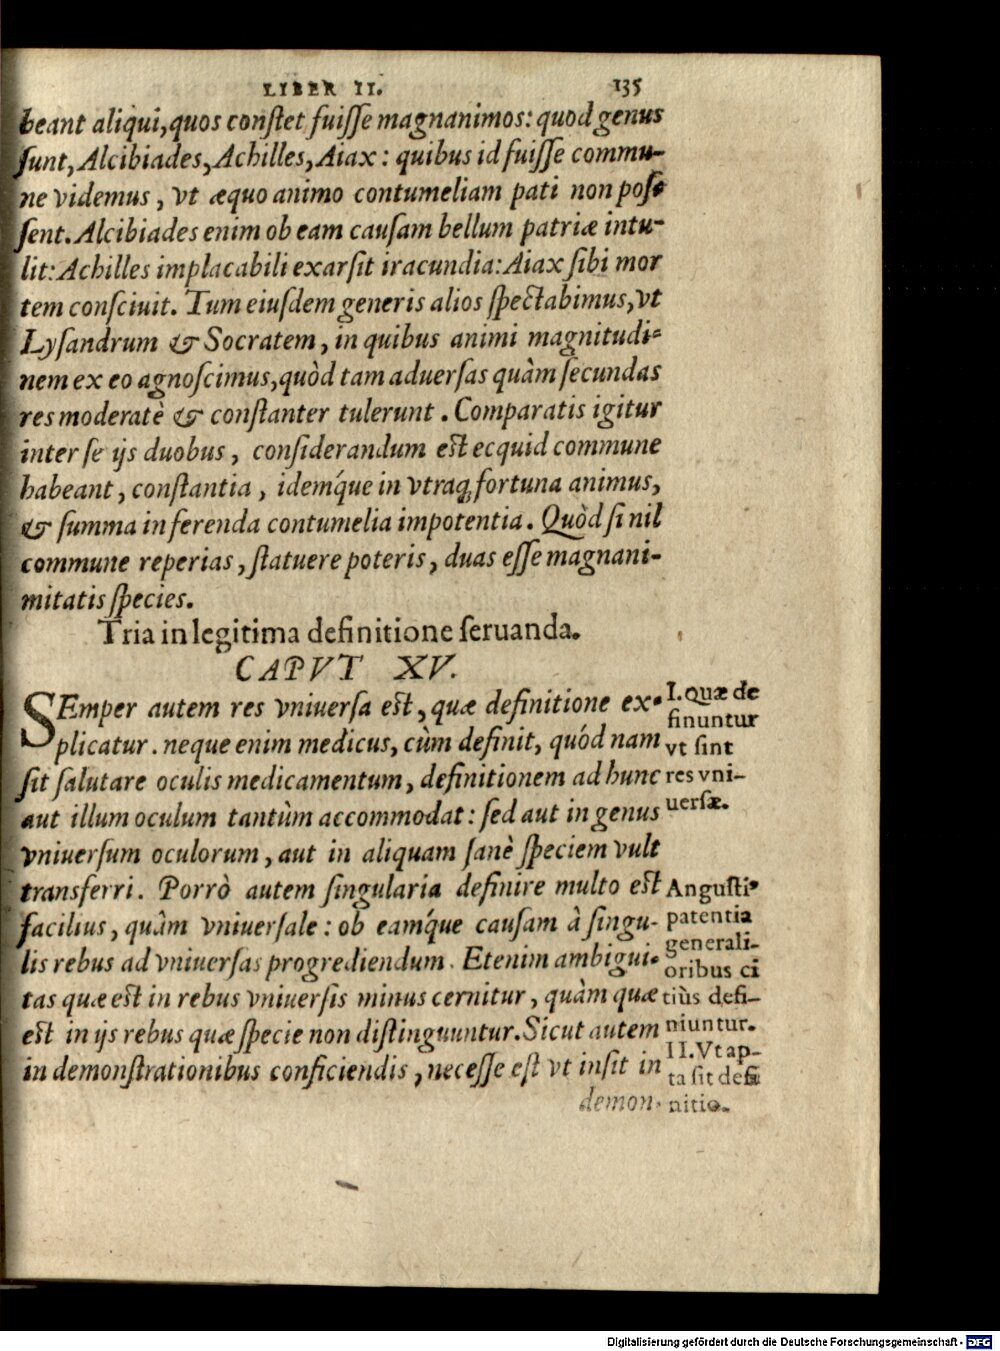 LIBER II. 135
beant aliqui, quos constet fuisse magnanimos: quod genus
sunt, Alcibiades, Achilles, Aiax: quibus id fuisse commu-
ne videmus, vt æquo animo contumeliam pati non pos-
sent. Alcibiades enim ob eam causam bellum patriæ intu-
lit: Achilles implacabili exarsit iracundia: Aiax sibi mor
tem consciuit. Tum eiusdem generis alios spectabimus, vt
Lysandrum & Socratem, in quibus animi magnitudi-
nem ex eo agnoscimus, quòd tam aduersas quàm secundas
res moderatè & constanter tulerunt. Comparatis igitur
inter se ijs duobus, considerandum est ecquid commune
habeant, constantia, idemq́ue in vtraq; fortuna animus,
& summa in ferenda contumelia impotentia. Quòd si nil
commune reperias, statuere poteris, duas esse magnani-
mitatis species.
Tria in legitima definitione seruanda.
CAPVT XV.
SEmper autem res vniuersa est, quæ definitione ex-
plicatur. neque enim medicus, cùm definit, quód nam
sit salutare oculis medicamentum, definitionem ad hunc
aut illum oculum tantùm accommodat: sed aut in genus
vniuersum oculorum, aut in aliquam sanè speciem vult
transferri. Porrò autem singularia definire multo est
facilius, quàm vniuersale: ob eamq́ue causam à singu-
lis rebus ad vniuersas progrediendum. Etenim ambigui-
tas quæ est in rebus vniuersis minus cernitur, quàm quæ
est in ijs rebus quæ specie non distinguuntur. Sicut autem
in demonstrationibus conficiendis, necesse est vt insit in
demon-
I. Quæ de
finuntur
vt sint
res vni-
uersæ.
Angusti'
patentia
generali-
oribus ci
tiùs defi-
niuntur.
II. Vt ap-
ta sit defi
nitio.
Digitalisierung gefördert durch die Deutsche Forschungsgemeinschaft - DFG